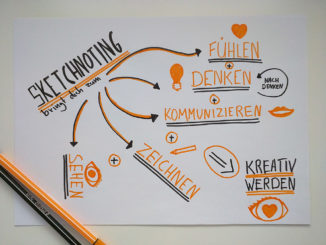 SKETCHNOTING
bringt dich zum
FÜHLEN
+
DENKEN
NACH
DENKEN
+
KOMMUNIZIEREN
+
ZEICHNEN
+
SEHEN
KREATIV
WERDEN